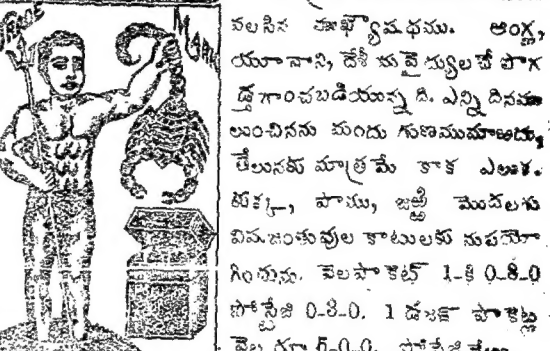 TRADE MARK
వలసిన ముఖ్యౌషధము. ఆంగ్ల,
యూనాని, దేశీయ వైద్యులచే పొగ
డ్తగాంచబడియున్నది. ఎన్ని దినము
లుంచినను మందు గుణముమాఱదు,
తేలునకు మాత్రమే కాక ఎలుక.
కుక్క, పాము, జఱ్ఱి మొదలగు
విషజంతువుల కాటులకు నుపయో
గించును. వెల పాకెట్ 1-కి 0-8-0
పోస్టేజి 0-8-0. 1 డజన్ పాకెట్ల
వెల రూ 5-0-0. పోస్టేజి